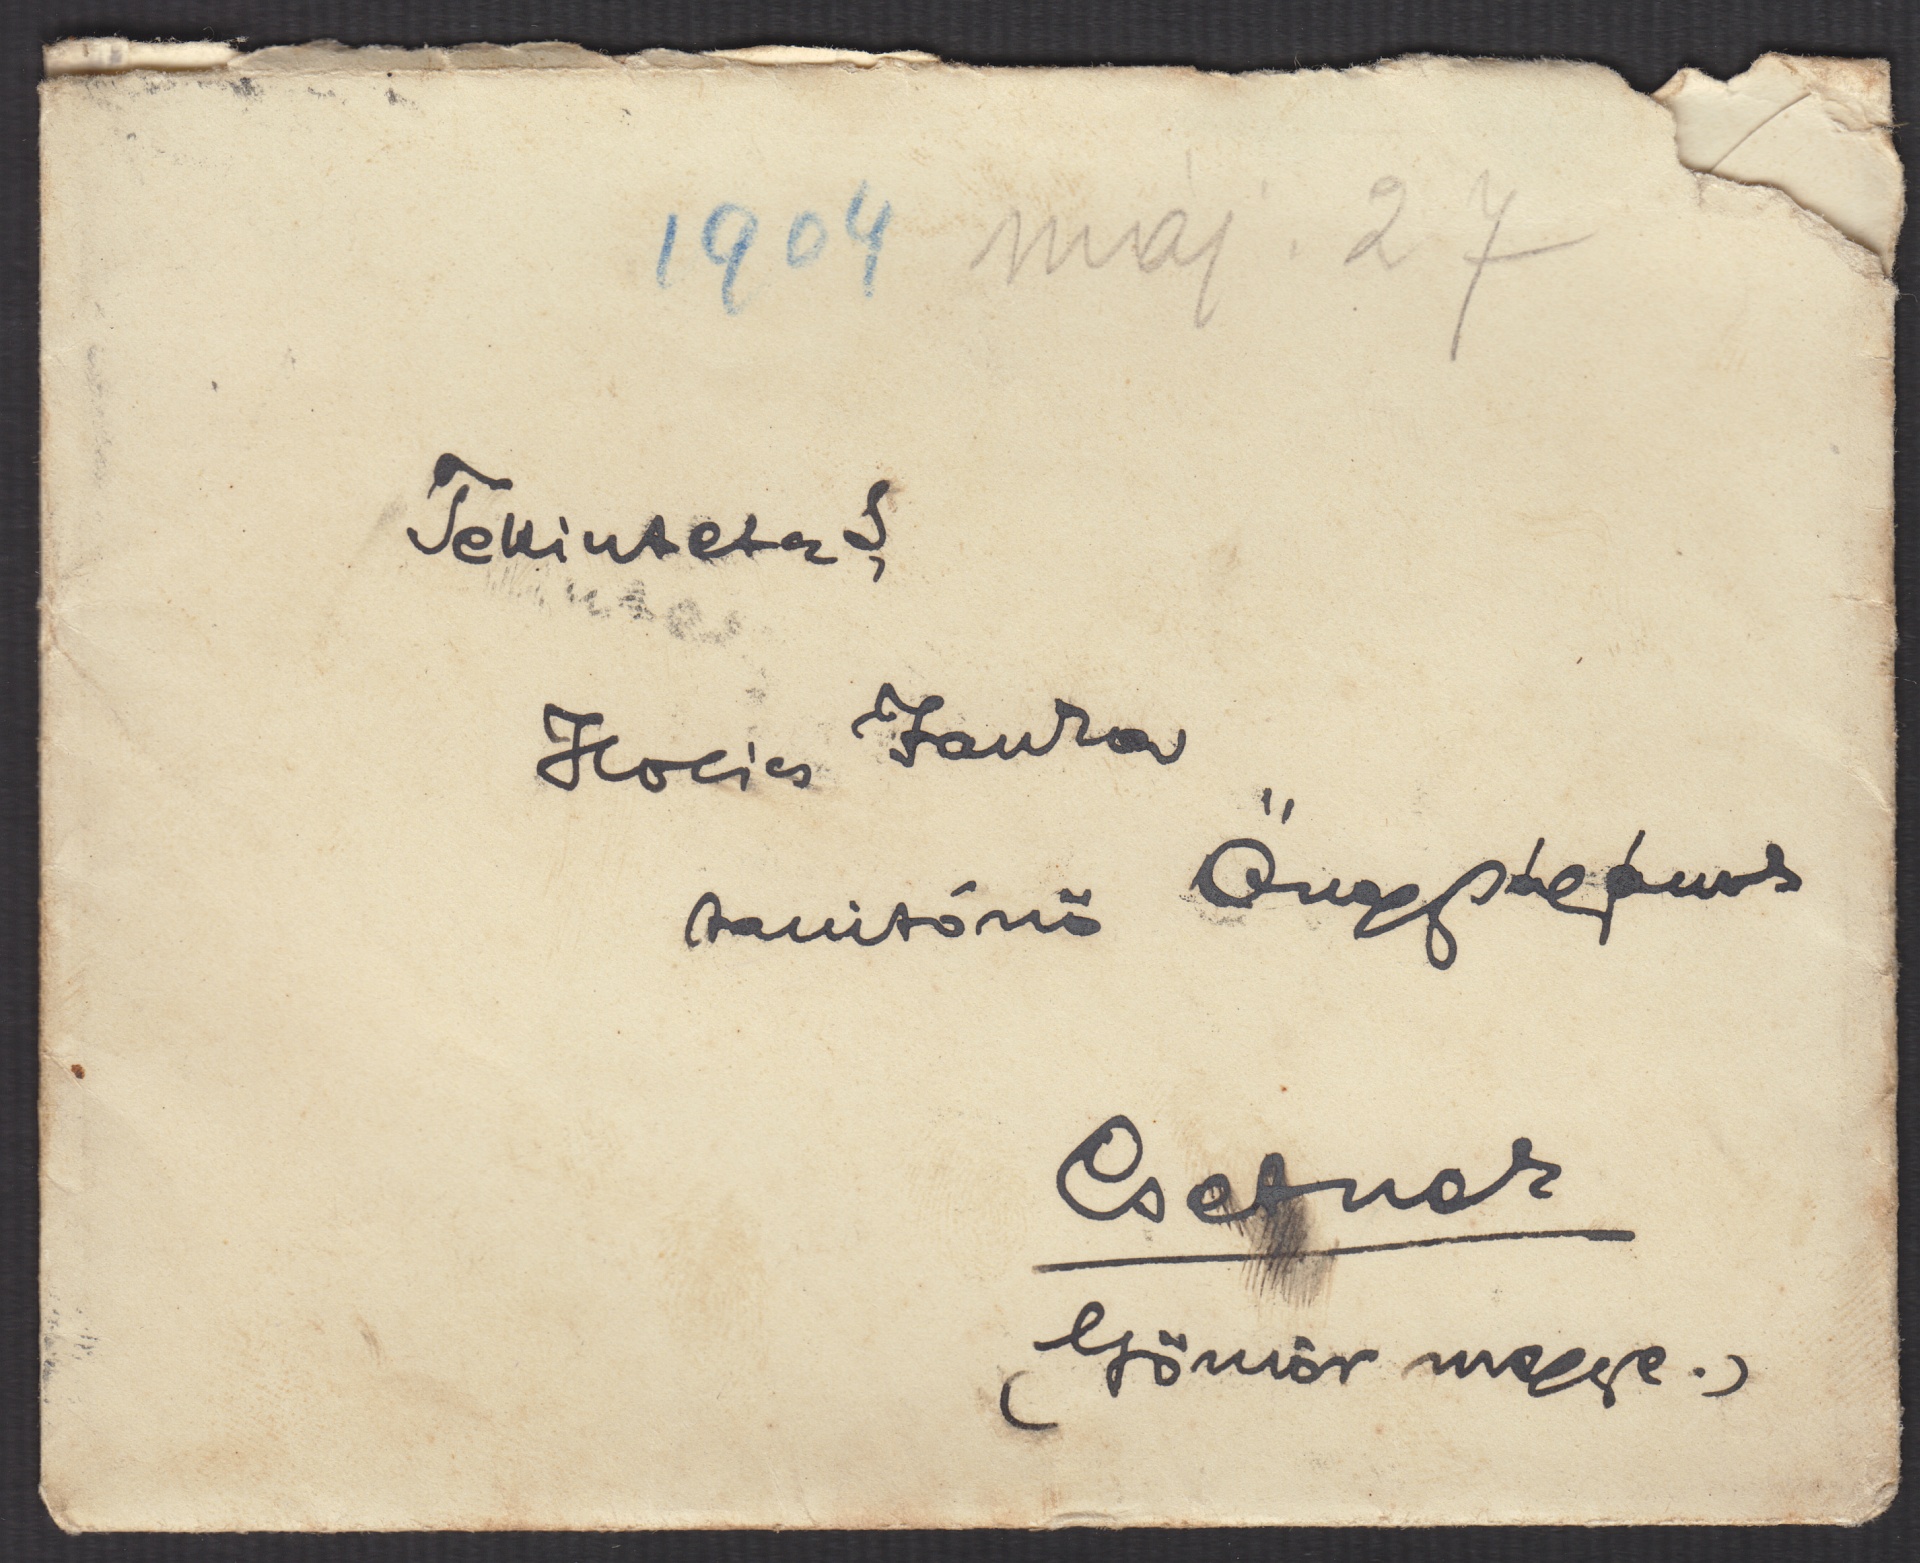 1904 máj. 27
Tekintetes
Kolics Janka
tanitónő Őnagyságának
Csetnek
(Gömör megye.)